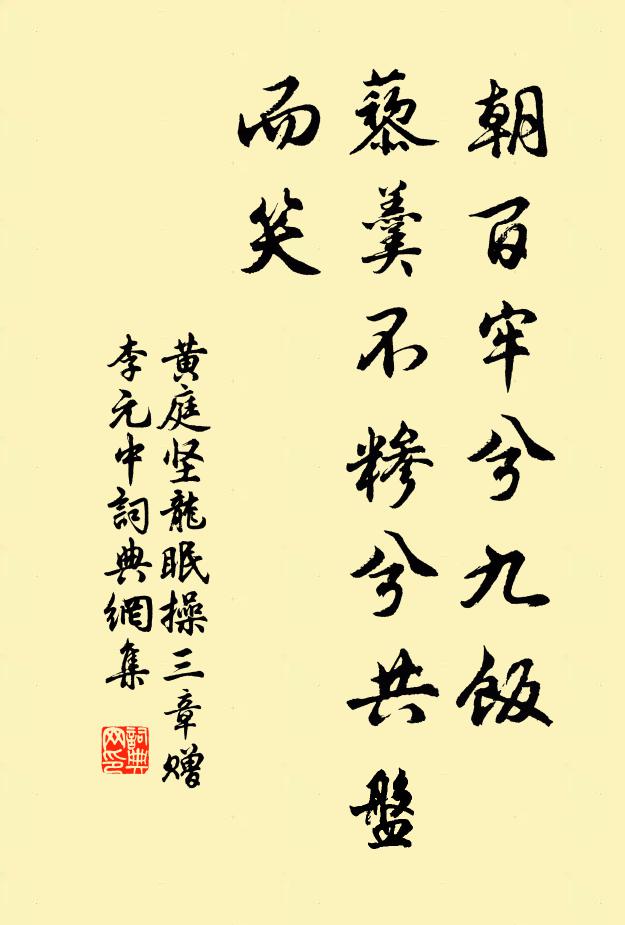 朝百牢兮九飯
藜羹不糝兮共盤
而笑
黄庭坚龍眠操三章赠
李元中詞典網集
詞典网印